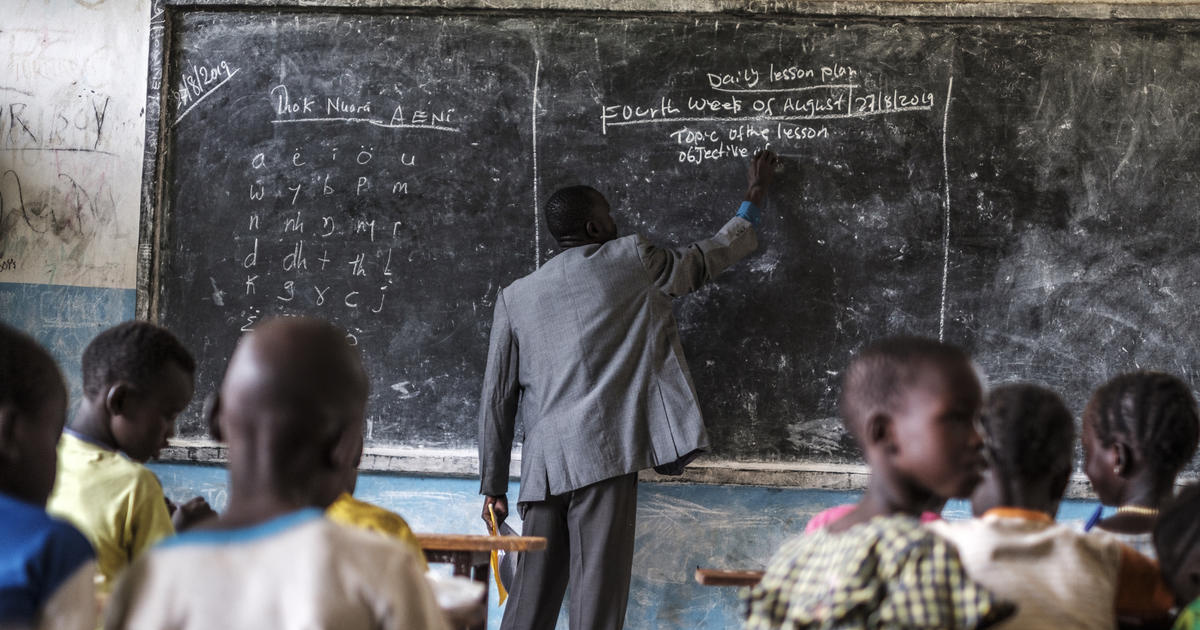 27/8/2019
Thok Nuära AENi
a ë i ö u
w y b p m
n nh ŋ ny r
d dh t th l
k g ɣ c j
Daily lesson plan
Fourth week of August 27/8/2019
Topic of the lesson
objective